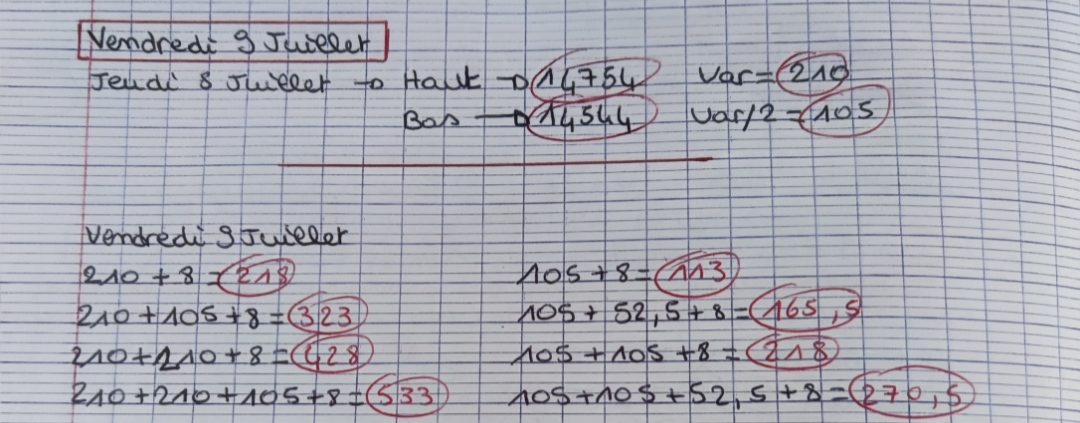 Vendredi 9 Juillet
Jeudi 8 Juillet → Haut → 14754 Var = 210
Bas → 14544 Var/2 = 105
Vendredi 9 Juillet
210 + 8 = 218 105 + 8 = 113
210 + 105 + 8 = 323 105 + 52,5 + 8 = 165,5
210 + 210 + 8 = 428 105 + 105 + 8 = 218
210 + 210 + 105 + 8 = 533 105 + 105 + 52,5 + 8 = 270,5